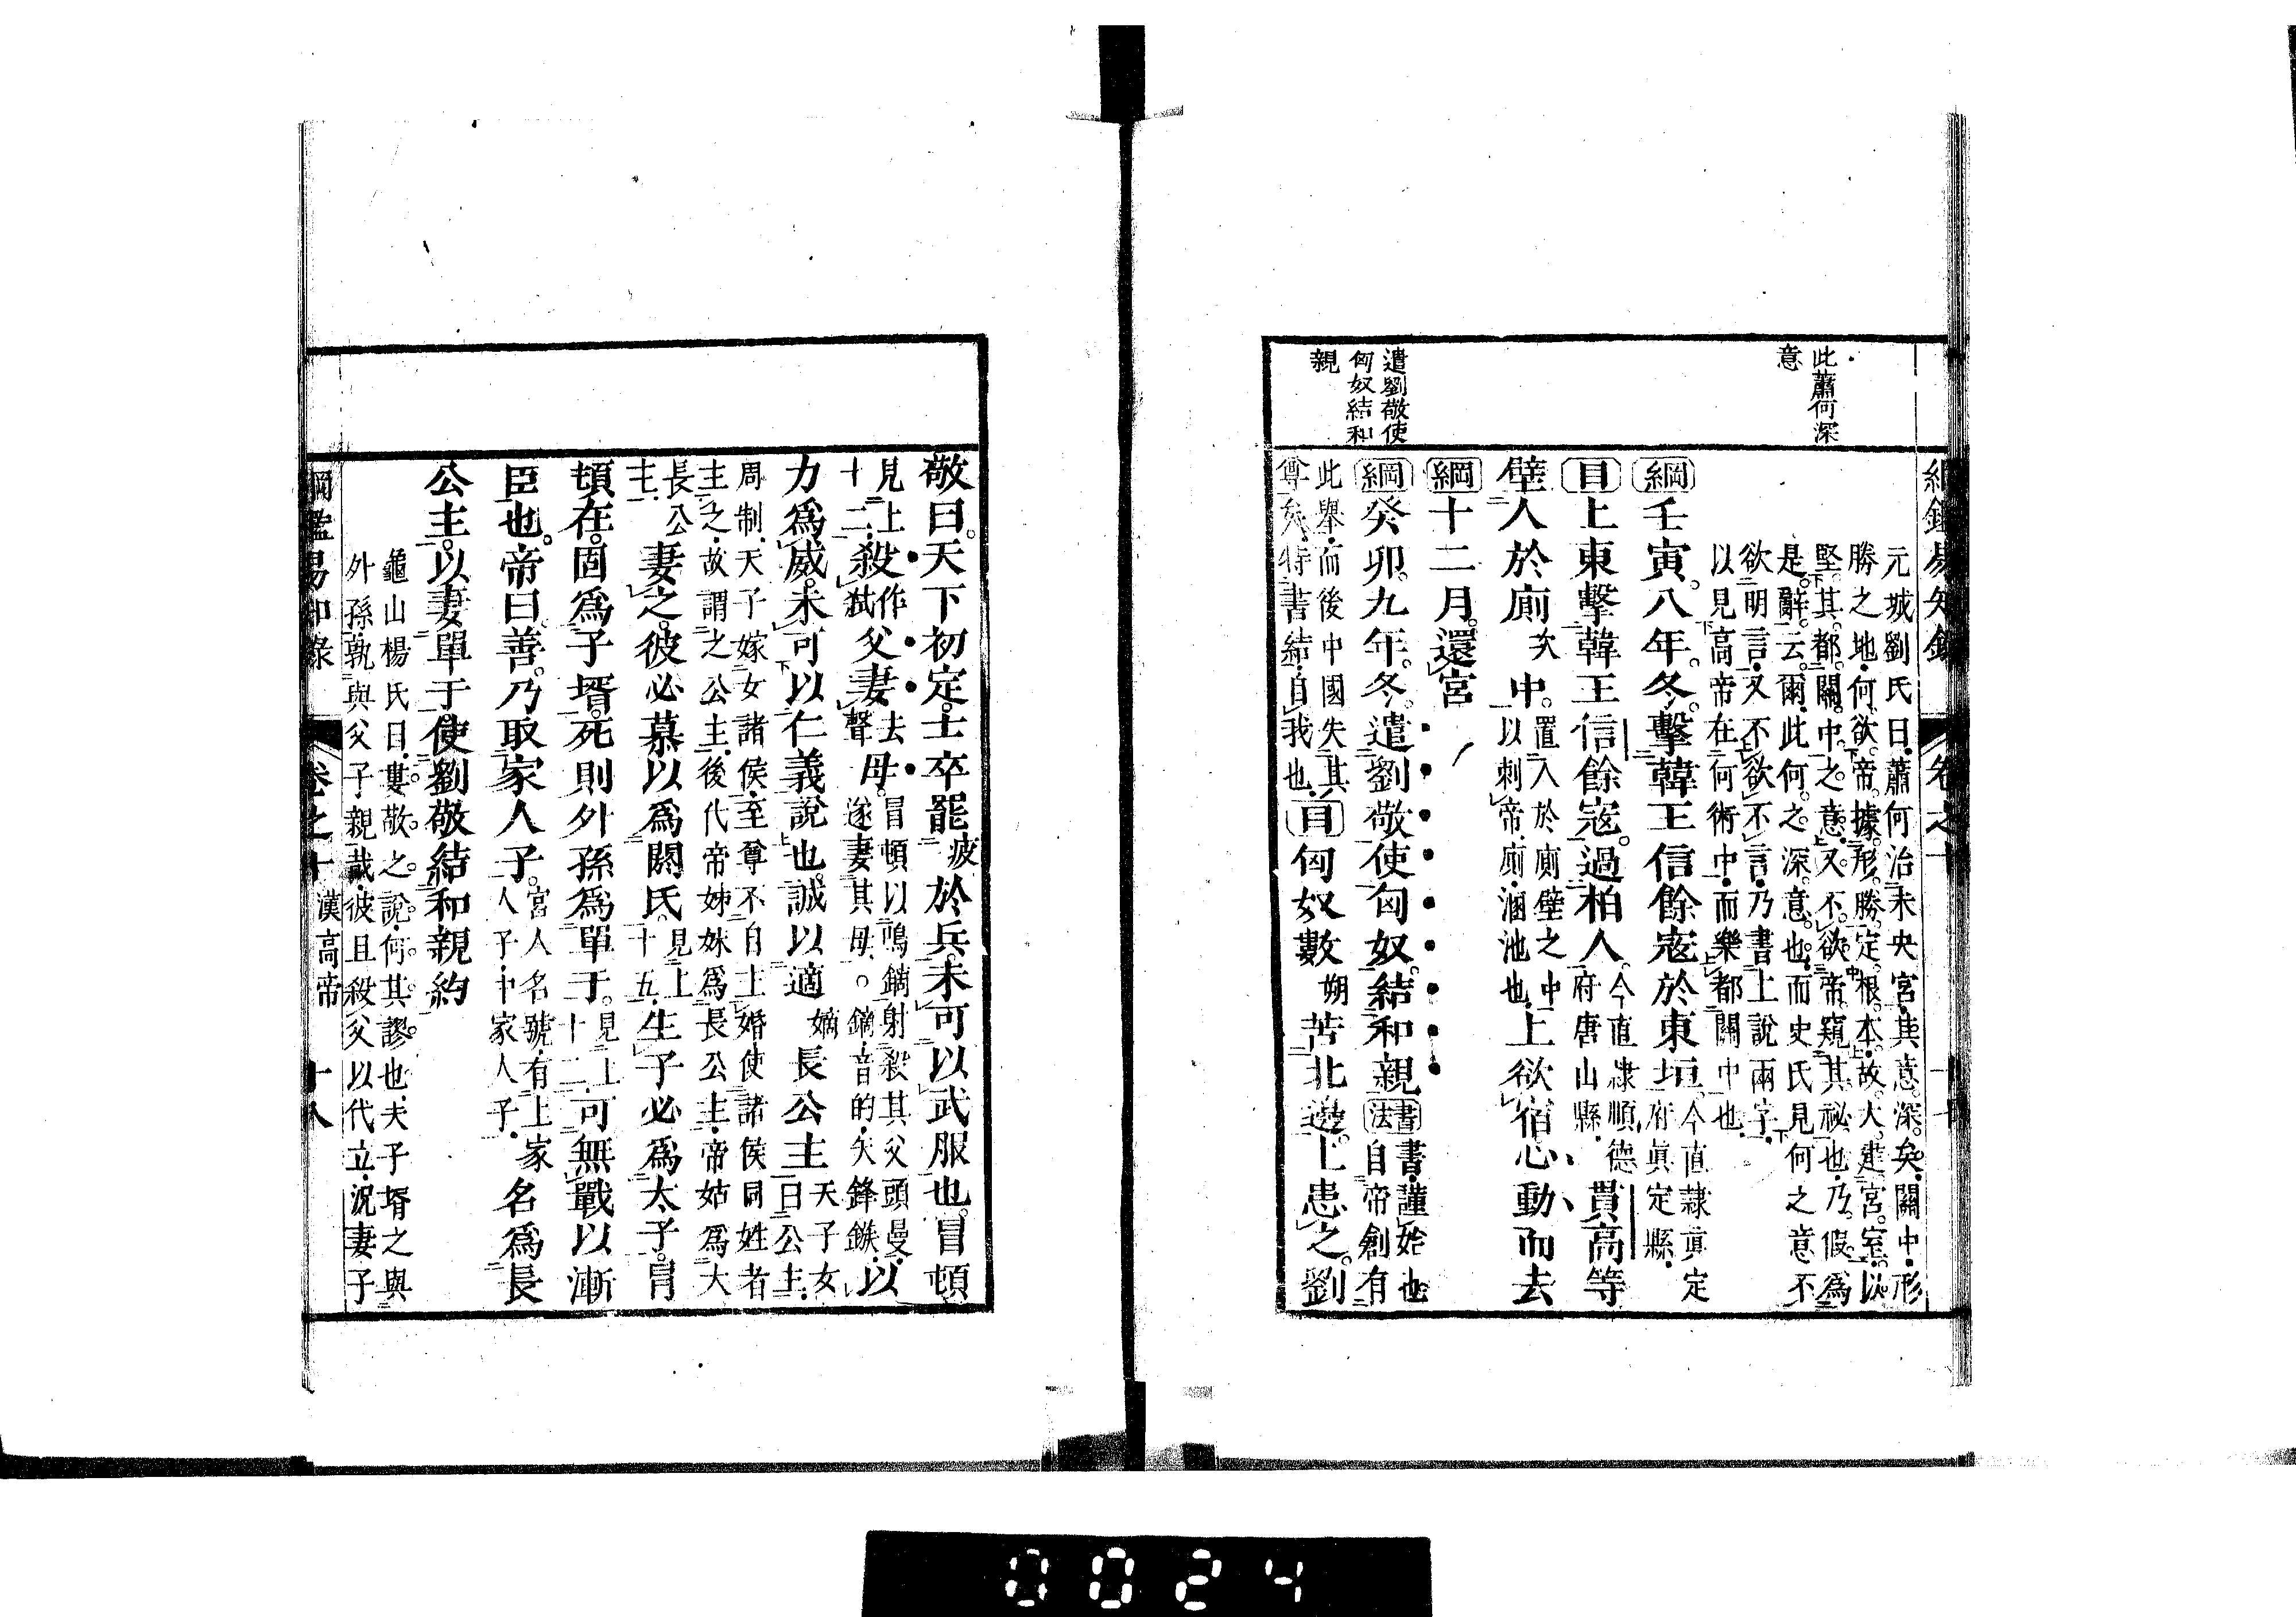 此蕭何深
意
遣劉敬使
匈奴結和
親
元城劉氏曰蕭何治未央宮其意深矣關中形
勝之地何欲帝據形勝定根本故大建宮室以
堅其都關中之意又不欲帝窺其祕也乃假爲
是辭云爾此何之深意也而史氏見何之意不
欲明言又不欲不言乃書上說兩字
以見高帝在何術中而樂都關中也
綱壬寅八年冬擊韓王信餘寇於東垣今直隷眞定
府眞定縣
目上東擊韓王信餘寇過柏人今直隷順德
府唐山縣貫高等
壁人於廁次中置入於廁壁之中
以刺帝廁溷池也上欲宿心動而去
綱十二月還宮
綱癸卯九年冬遣劉敬使匈奴結和親書法書謹始也
自帝創有
此舉而後中國失其
尊矣特書結自我也目匈奴數朔苦北邊上患之劉
敬曰天下初定士卒罷疲於兵未可以武服也冒頓
見上
十二殺作
弑父妻去
聲母冒頓以鳴鏑射殺其父頭曼
遂妻其母○鏑音的矢鋒鏃以
力爲威未可以仁義說也誠以適嫡長公主天子女
曰公主
周制天子嫁女諸侯至尊不自主婚使諸侯同姓者
主之故謂之公主後代帝姊妹爲長公主帝姑爲大
長公
主妻之彼必慕以爲閼氏見上
十五生子必爲太子冒
頓在固爲子壻死則外孫爲單于見上
十二可無戰以漸
臣也帝曰善乃取家人子宮人名號有上家
人子中家人子名爲長
公主以妻單于使劉敬結和親約
龜山楊氏曰婁敬之說何其謬也夫子壻之與
外孫孰與父子親哉彼且殺父以代立況妻子
綱鑑易知錄 卷之十 漢高帝 十八
0024